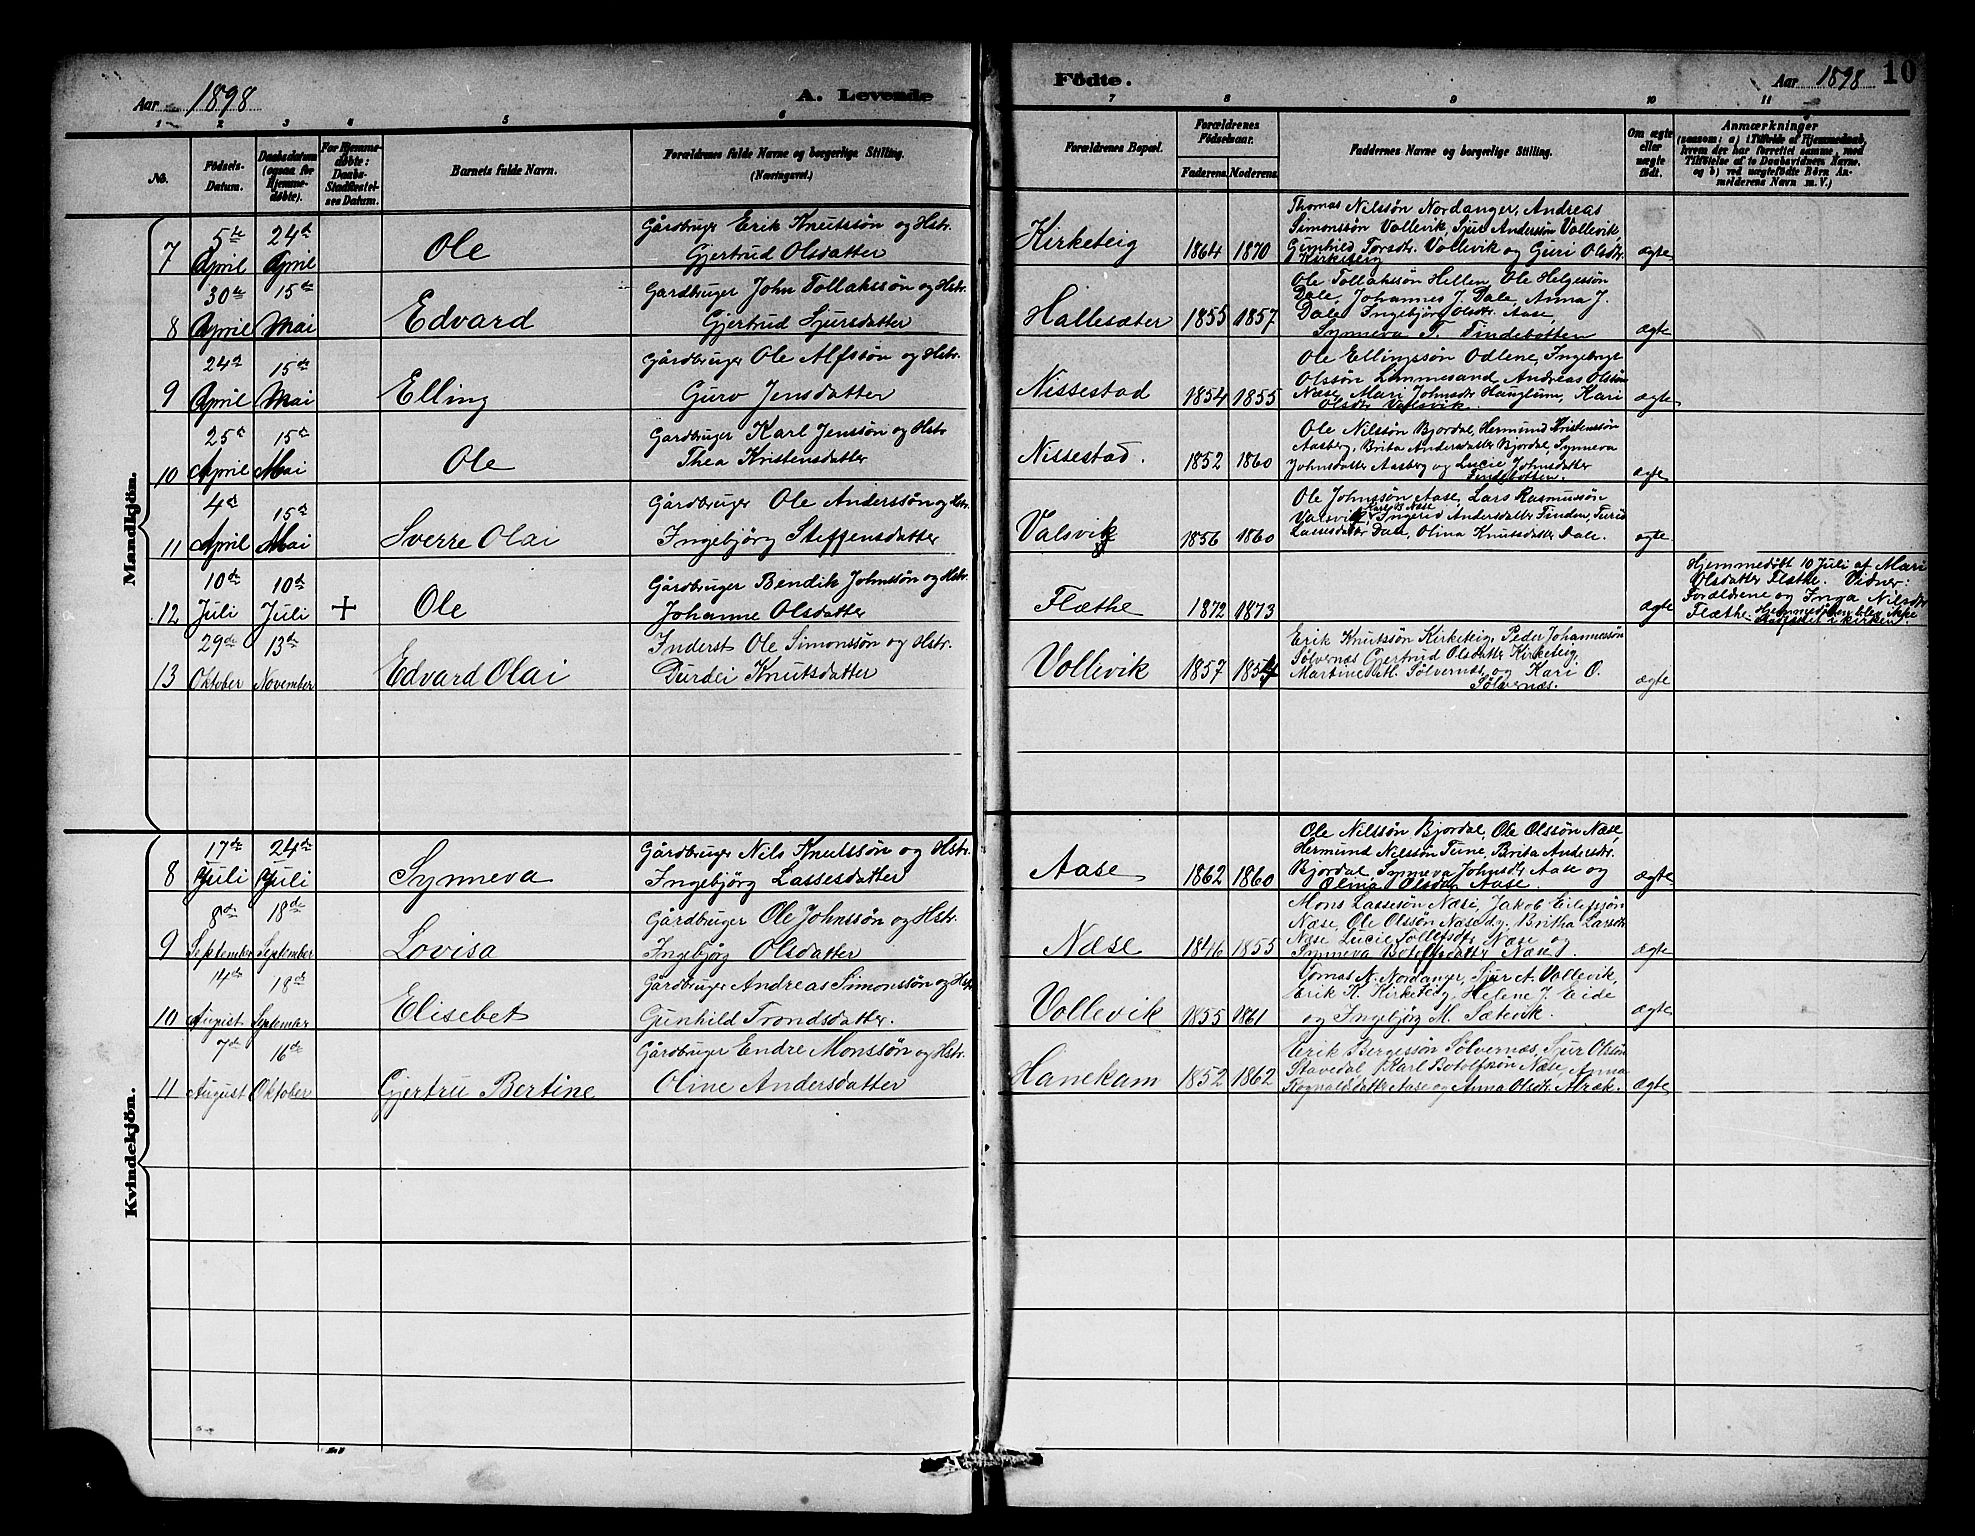 Aar 1898
A. Levende
Födte.
Aar 1898
10
1 2 3 4 5 6 7 8 9 10 11
No.
Födsels-
Datum.
Daabsdatum
(ogsaa for
Hjemme-
döbte).
For Hjemme-
döbte:
Daabs-
Stadfæstel-
ses Datum.
Barnets fulde Navn.
Forældrenes fulde Navne og borgerlige Stilling.
(Næringsvei.)
Forældrenes Bopæl.
Forældrenes
Födselsaar.
Faderens. Moderens.
Faddernes Navne og borgerlige Stilling.
Om ægte
eller
uægte
födt.
Anmærkninger
(saasom: a) i Tilfælde af Hjemmedaab,
hvem der har forrettet samme, med
Tilföielse af to Daabsvidners Navne.
og b) ved uægtefödte Börn An-
melderens Navn m. V.)
Mandkjön.
7
5te
April
24d
April
Ole
Gårdbruger Erik Knutssøn og Hstr.
Gjertrud Olsdatter
Kirketeig
1864 1870
Thomas Nilssøn Nordanger, Andreas
Simonssøn Vollevik, Sjur Anderssøn Vollevik
Gunhild Torsdtr. Vollevik og Guri Olsdtr.
Kirketeig
ægte
8
30te
April
15de
Mai
Edvard
Gardbruger John Tollakssøn og Hstr.
Gjertrud Sjursdatter
Hallesæter
1855 1857
Ole Tollakssøn Hellen, Ole Helgessøn
Dale, Johannes J. Dale, Anna J.
Dale, Ingebjørg Olsdtr. Aase,
Synneva T. Tindebotten
ægte
9
24d
April
15de
Mai
Elling
Gårdbruger Ole Alfssøn og Hstr.
Guro Jensdatter
Nissestad
1854 1855
Ole Ellingssøn Odlene, Ingebrigt
Olssøn Limmesand, Andreas Olssøn
Næse, Mari Johnsdtr Hauglum, Kari
Olsdtr Valsvik.
ægte
10
25d
April
15d
Mai
Ole
Gardbruger Karl Jenssøn og Hstr
Thea Kristensdatter
Nissestad.
1852 1860
Ole Nilssøn Bjordal, Hermund Kristenssøn
Aasberg, Brita Andersdatter Bjordal, Synneva
Johnsdatter Aasberg og Lucie Johnsdatter
Tindebotten.
ægte
11
4d
April
15d
Mai
Sverre Olai
Gårdbruger Ole Anderssøn og Hstr.
Ingebjørg Steffensdatter
Valsvik
1856 1860
Ole Johnssøn Aase, Lars Rasmussøn
Valsvik, Karl B. Næse, Ingerid Andersdatter Finden, Turid
Lassesdatter Dale, Olina Knutsdatter Dale.
ægte
12
10de
Juli
10d
Juli
+
Ole
Gårdbruger Bendik Johnssøn og Hstr.
Johanne Olsdatter
Flæthe
1872 1873
ægte
Hjemmedöbt 10 Juli af Mari
Olsdatter Flæthe. Vidner:
Forældrene og Inga Nilsdtr
Flæthe. Hjemmedåben blev ikke
stadfæstet i kirken.
13
29de
Oktober
13de
November
Edvard Olai
Inderst Ole Simonssøn og Hstr.
Durdei Knutsdatter
Vollevik
1857 1854
Erik Knutssøn Kirketeig, Peder Johannessøn
Sølvernæs, Gjertrud Olsdatter Kirketeig,
Martine Mtl. Sølvernæs og Kari O.
Sølvernæs.
ægte
Kvindekjön.
8
17de
Juli
24de
Juli
Synneva
Gårdbruger Nils Knutssøn og Hstr.
Ingebjörg Lassesdatter
Aase
1862 1860
Ole Nilssøn Bjordal, Ole Olssøn Næse,
Hermund Nilssøn Tune, Brita Andersdtr.
Bjordal, Synneva Johnsdtr Aase og
Olina Olsdtr Aase.
ægte
9
8de
September
18de
September
Lovisa
Gårdbruger Ole Johnssøn og Hstr.
Ingebjørg Olsdatter
Næse
1846 1855
Mons Lassesøn Næse, Jakob Eilefsøn
Næse, Ole Olssøn Næse, Britha Larsdtr
Næse, Lucie Næse og
Synneva Botolfsdatter Næse.
ægte
10
14de
August
18de
September
Elisebet
Gårdbruger Andreas Simonssøn og Hstr
Gunhild Trondsdatter.
Vollevik
1855 1861
Tomas N. Nordanger, Sjur A. Vollevik,
Erik K. Kirketeig, Helene J. Eide
og Ingebjørg M. Sætevik.
ægte
11
7de
August
16de
Oktober
Gjertru Bertine
Gårdbruger Endre Monssøn og Hstr.
Oline Andersdatter
Hanekam
1852 1862
Erik Bergessøn Sølvernæs, Sjur Olssøn
Stavedal, Karl Botolfssøn Næse, Anna
Rognaldsdatter Aase og Anna Olsdtr. Alræk.
ægte